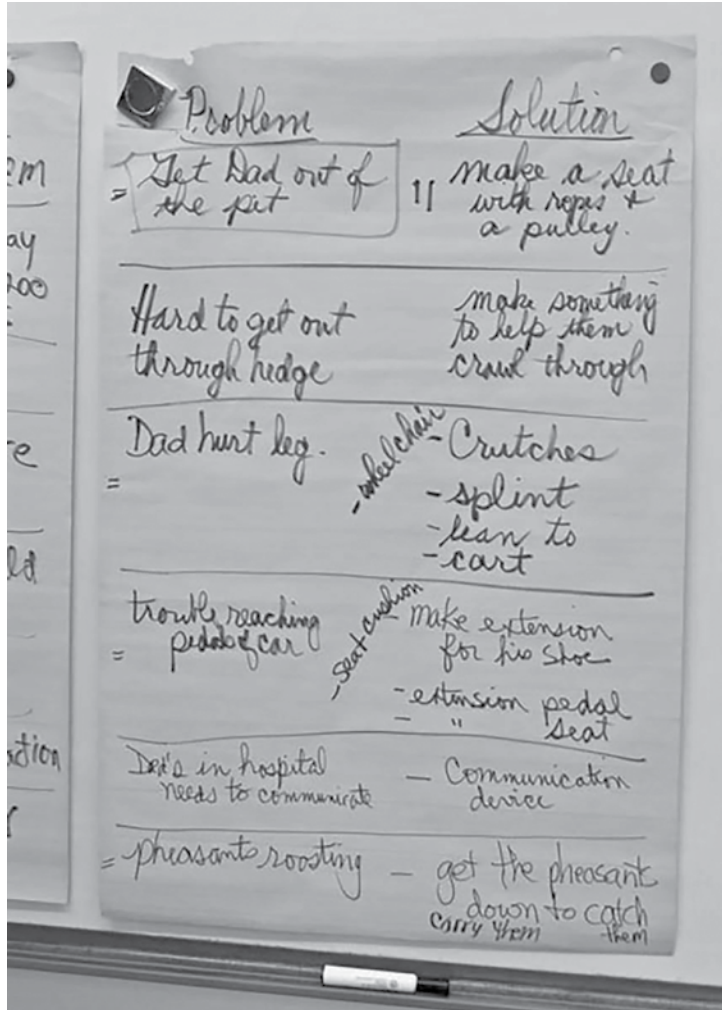 em
ay
200
e
ld
ction
Problem
Solution
= Get Dad out of
the pit
11 make a seat
with ropes &
a pulley.
Hard to get out
through hedge
make something
to help them
crawl through
Dad hurt leg.
=
- wheelchair
- Crutches
- splint
- lean to
- cart
trouble reaching
pedals of car
=
- seat cushion
- make extension
for his shoe
- extension pedal
- " seat
Dad's in hospital
needs to communicate
- Communication
device
= pheasants roosting
- get the pheasants
down to catch
carry them them